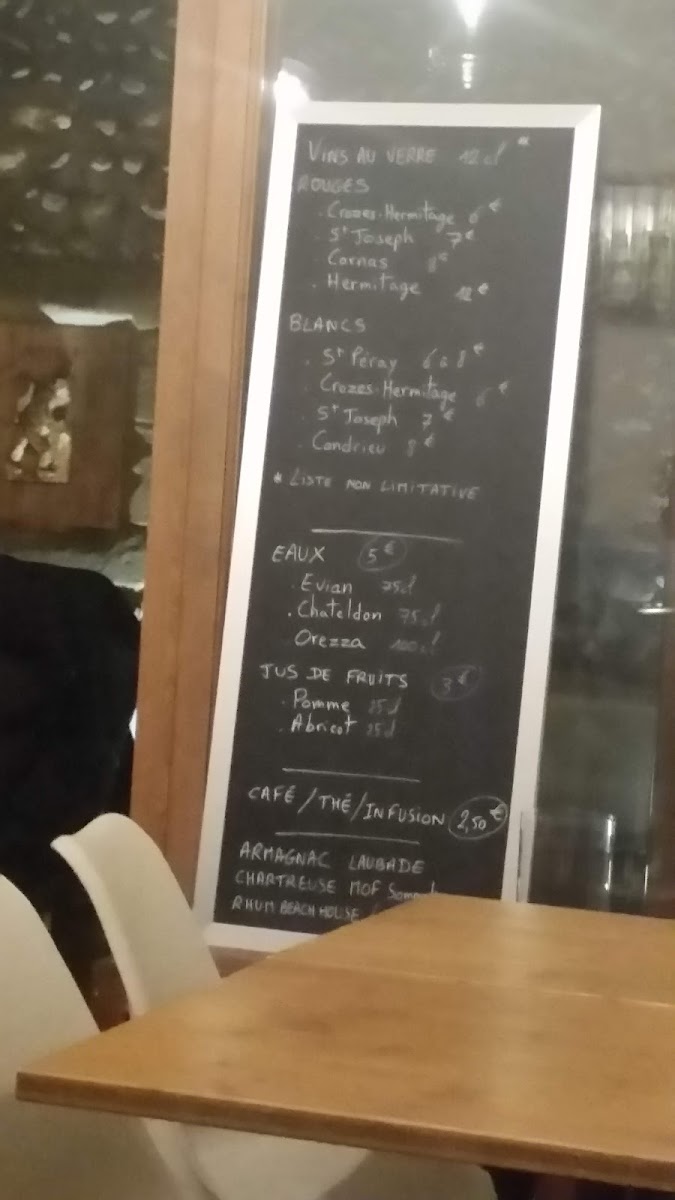 VINS AU VERRE 12 cl *
ROUGES
. Crozes-Hermitage 6€
. St Joseph 7€
. Cornas 8€
. Hermitage 12€
BLANCS
. St Péray 6 à 8€
. Crozes-Hermitage 6€
. St Joseph 7€
. Condrieu 8€
* LISTE NON LIMITATIVE
EAUX 5€
. Evian 75cl
. Chateldon 75cl
Orezza 100cl
JUS DE FRUITS 3€
. Pomme 25cl
. Abricot 25cl
CAFÉ/THÉ/INFUSION 2,50€
ARMAGNAC LAUBADE
CHARTREUSE MOF
RHUM BEACH HOUSE